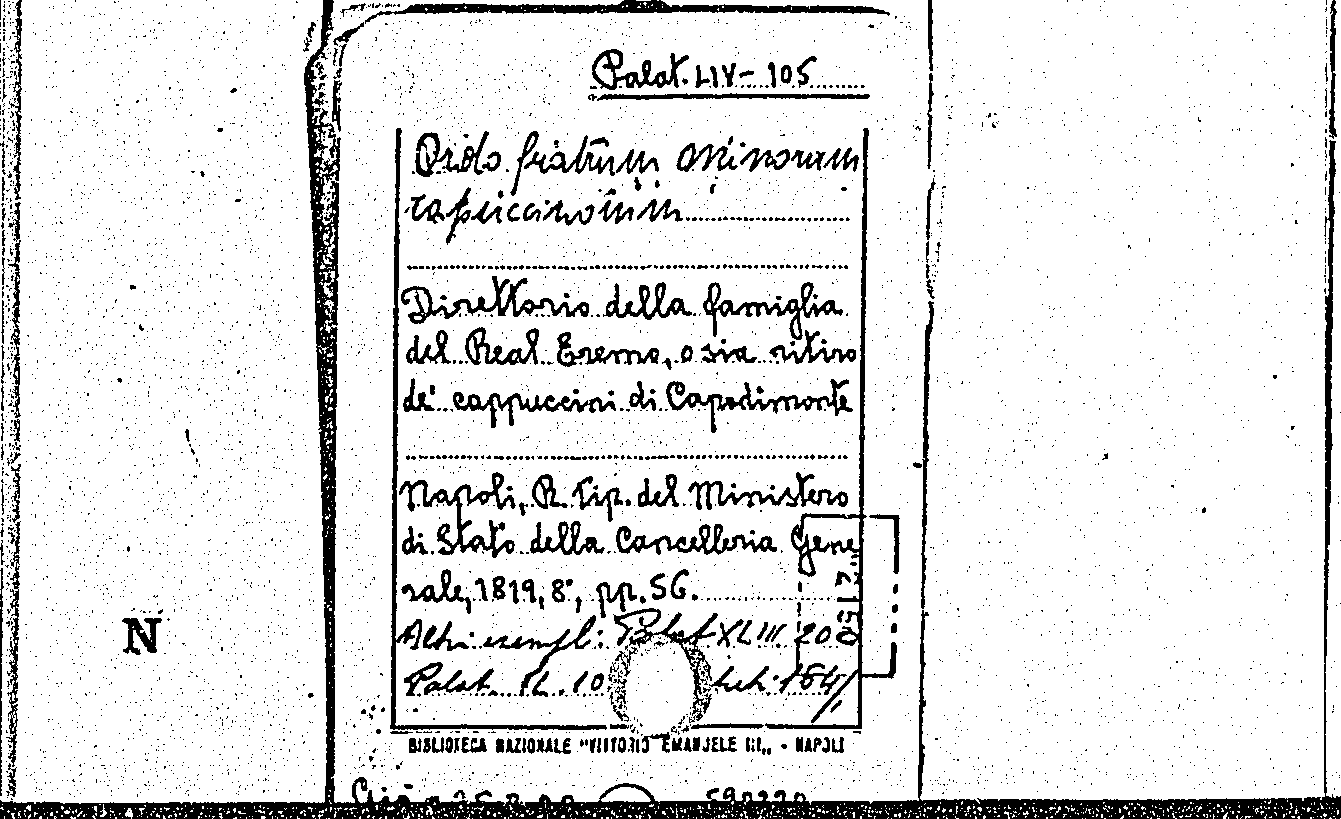 Palat. LIV - 105
Ordo fratrum Minorum
cappuccinorum
Direttorio della famiglia
del Real Eremo, o sia ritiro
de' cappuccini di Capodimonte
Napoli, R. Tip. del Ministero
di Stato della Cancelleria Gene
rale, 1819, 8°, pp. 56.
Altri esempl: Palat XLIII 20
Palat. 10
N
BIBLIOTECA NAZIONALE "VITTORIO EMANUELE III„ - NAPOLI